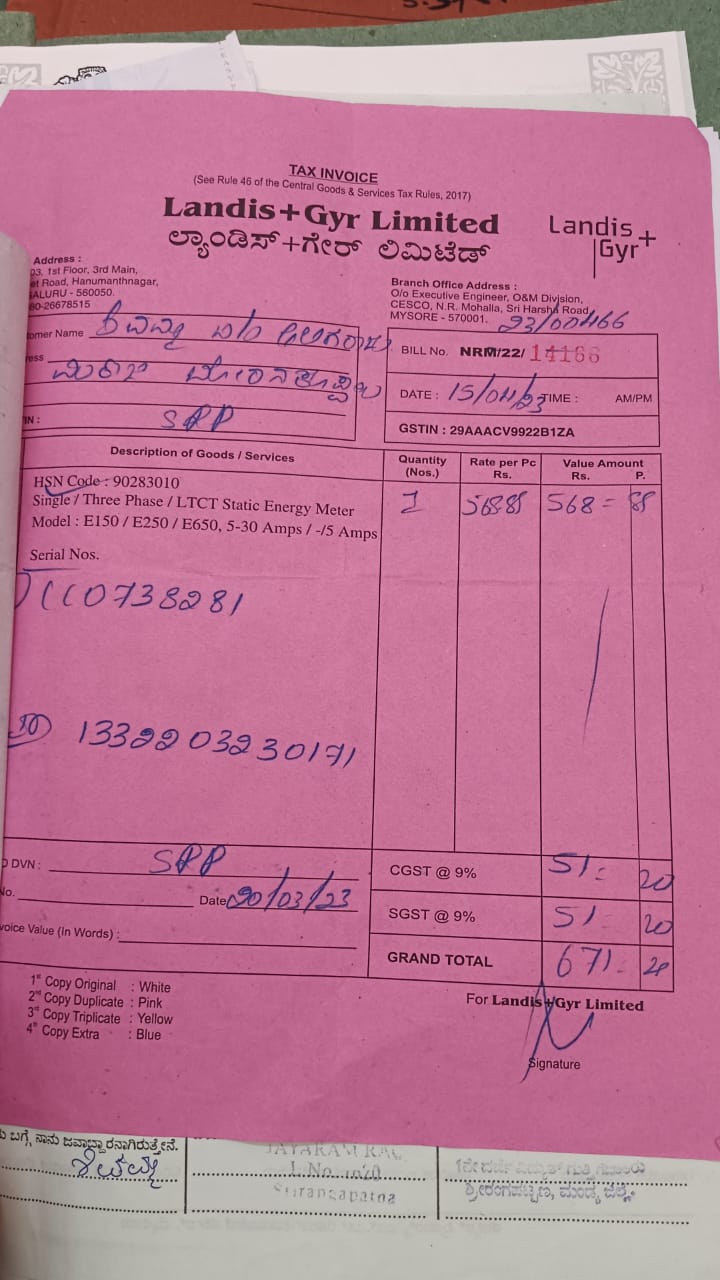 TAX INVOICE
(See Rule 46 of the Central Goods & Services Tax Rules, 2017)
Landis+Gyr Limited
ಲ್ಯಾಂಡಿಸ್+ಗೇರ್ ಲಿಮಿಟೆಡ್
Landis+
Gyr
Address :
03, 1st Floor, 3rd Main,
et Road, Hanumanthnagar,
ALURU - 560050.
80-26678515
Branch Office Address :
O/o Executive Engineer, O&M Division,
CESCO, N.R. Mohalla, Sri Harsha Road,
MYSORE - 570001.
omer Name
ress
SRP
IN :
BILL No. NRM/22/ 14166
DATE : 15/04/23 TIME : AM/PM
GSTIN : 29AAACV9922B1ZA
Description of Goods / Services Quantity (Nos.) Rate per Pc Rs. Value Amount Rs. P.
HSN Code : 90283010
Single / Three Phase / LTCT Static Energy Meter 1 568.88 568 = 88
Model : E150 / E250 / E650, 5-30 Amps / -/5 Amps
Serial Nos.
0738281
1332203230171
DVN : SRP
No. Date 20/03/23
voice Value (In Words) :
CGST @ 9% 51 = 20
SGST @ 9% 51 20
GRAND TOTAL 671 = 28
1st Copy Original : White
2nd Copy Duplicate : Pink
3rd Copy Triplicate : Yellow
4th Copy Extra : Blue
For Landis+Gyr Limited
Signature
ಬಗ್ಗೆ ನಾನು ಜವಾಬ್ದಾರನಾಗಿರುತ್ತೇನೆ.
JAYARAM RAO
Srirangapatna
ಶ್ರೀರಂಗಪಟ್ಟಣ, ಮಂಡ್ಯ ಜಿಲ್ಲೆ.